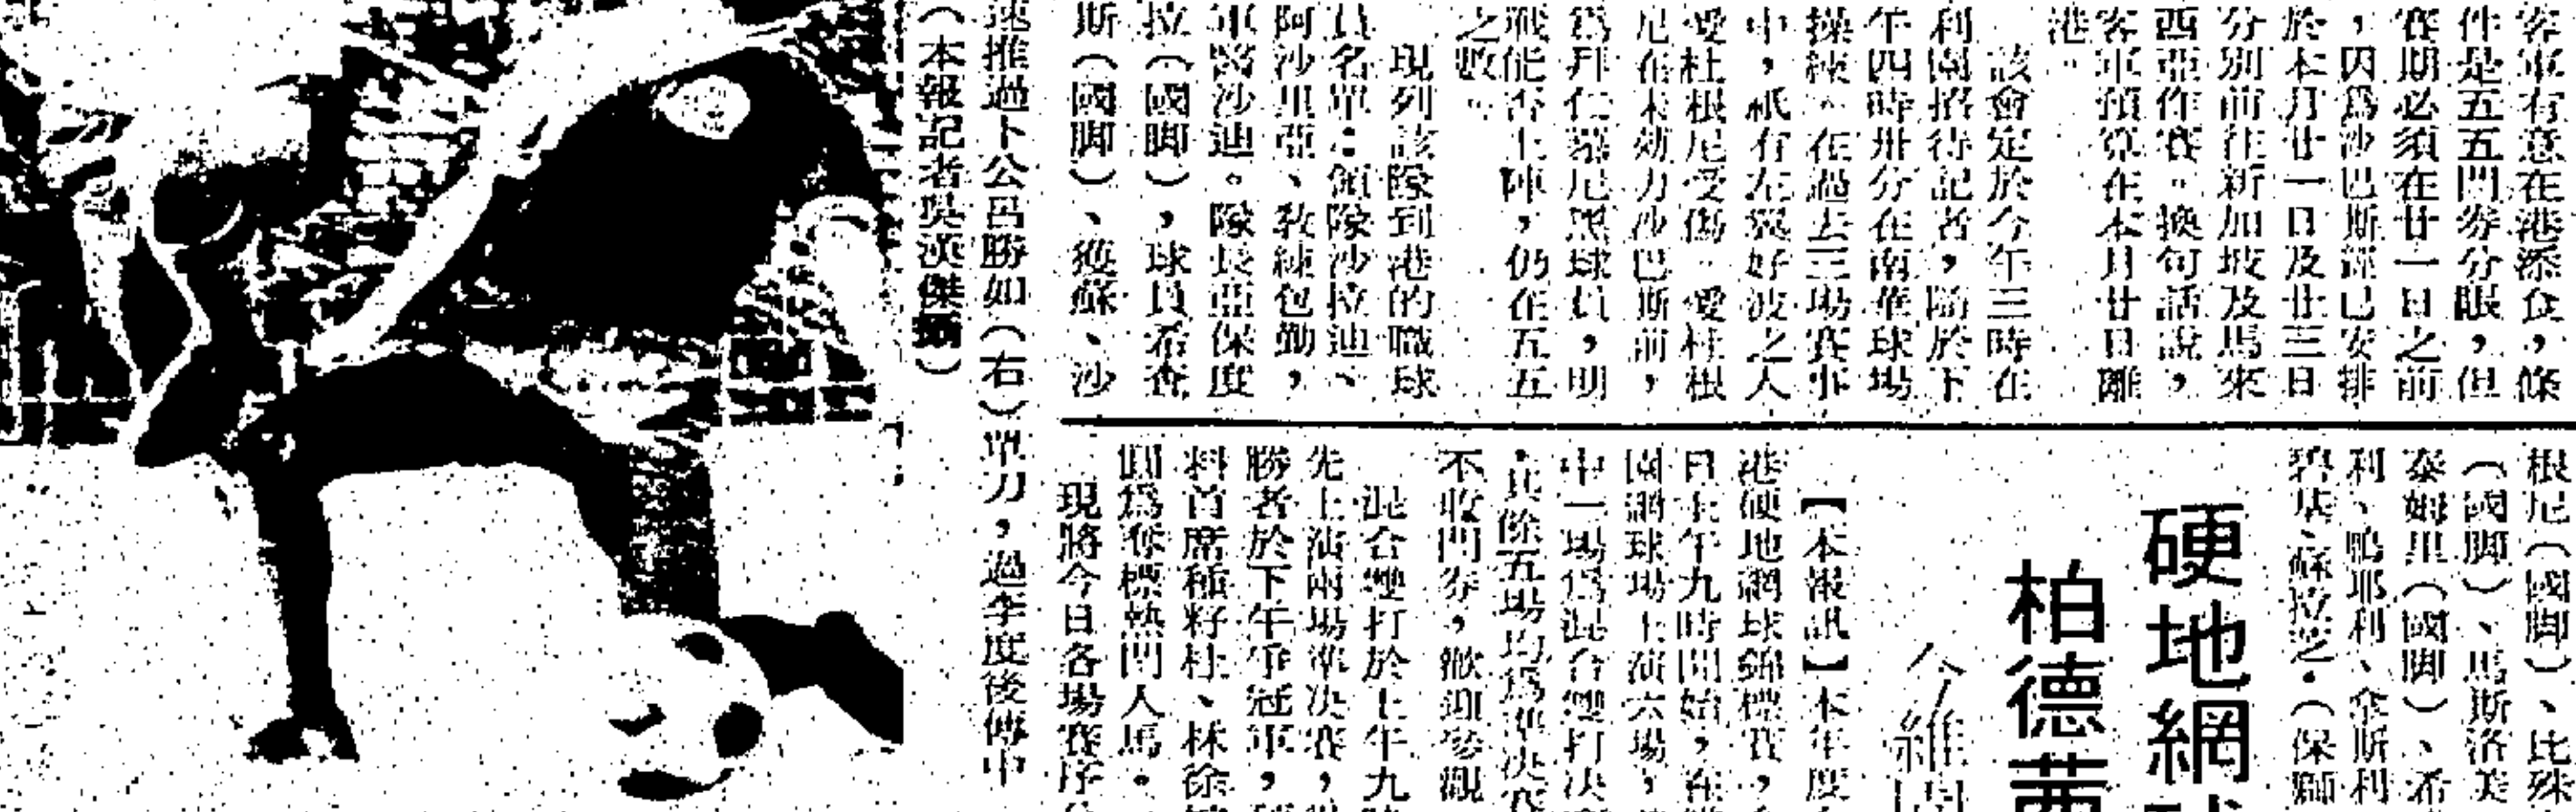 客軍有意在港添食，條
件是五五門券分賬，但
賽期必須在廿一日之前
，因爲沙巴斯經已安排
於本月廿一日及廿三日
分別前往新加坡及馬來
西亞作賽。換句話說，
客軍預算在本月廿日離
港。
該會定於今午三時在
利園招待記者，隨於下
午四時卅分在南華球場
操練。在過去三場賽事
中，祇有左翼好波之人
愛杜根尼受傷。愛杜根
尼在未効力沙巴斯前，
爲拜仁慕尼黑球員，明
戰能否上陣，仍在五五
之數。
現列該隊到港的職球
員名單：領隊沙拉迪、
阿沙里亞、教練包勤，
軍醫沙迪。隊長亞保度
拉（國脚），球員希查
斯（國脚）、獲蘇、沙
速推過卜公呂勝如（右）單刀，過李度後傳中
（本報記者吳漢傑攝）
根尼（國脚）、比殊
（國脚）、馬斯洛美
泰姆里（國脚）、希
利、鴨耶利、余斯利
碧基、蘇拉芝。（保獅
硬地網球
柏德茜
今維園
【本報訊】本年度
港硬地網球錦標賽，
日上午九時開始，在維
園網球場上演六場，
中一場爲混合雙打決賽
，其餘五場均爲準決賽
不收門券，歡迎參觀
混合雙打於上午九時
先上演兩場準决賽，
勝者於下午爭冠軍，
料首席種籽杜、林徐
圍爲奪標熱門人馬。
現將今日各場賽序